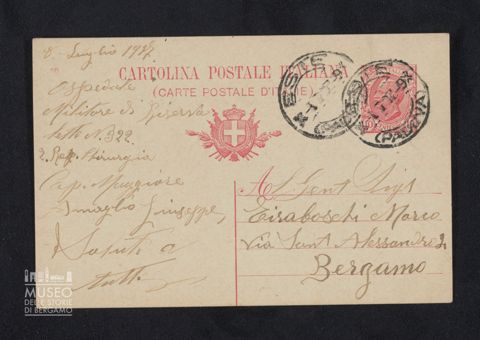 8 - Luglio 1917
CARTOLINA POSTALE ITALIANA
(CARTE POSTALE D'ITALIE)
ESTE
ESTE
(PADOVA)
Ospedale
Militare di Riserva
Letto N. 322
2. Rep. Chirurgia
Cap. Maggiore
Smaglio Giuseppe
Saluti a
tutti
Al Gent Sig
Tiraboschi Marco
Via Sant Alessandro
Bergamo
MUSEO
DELLE STORIE
DI BERGAMO